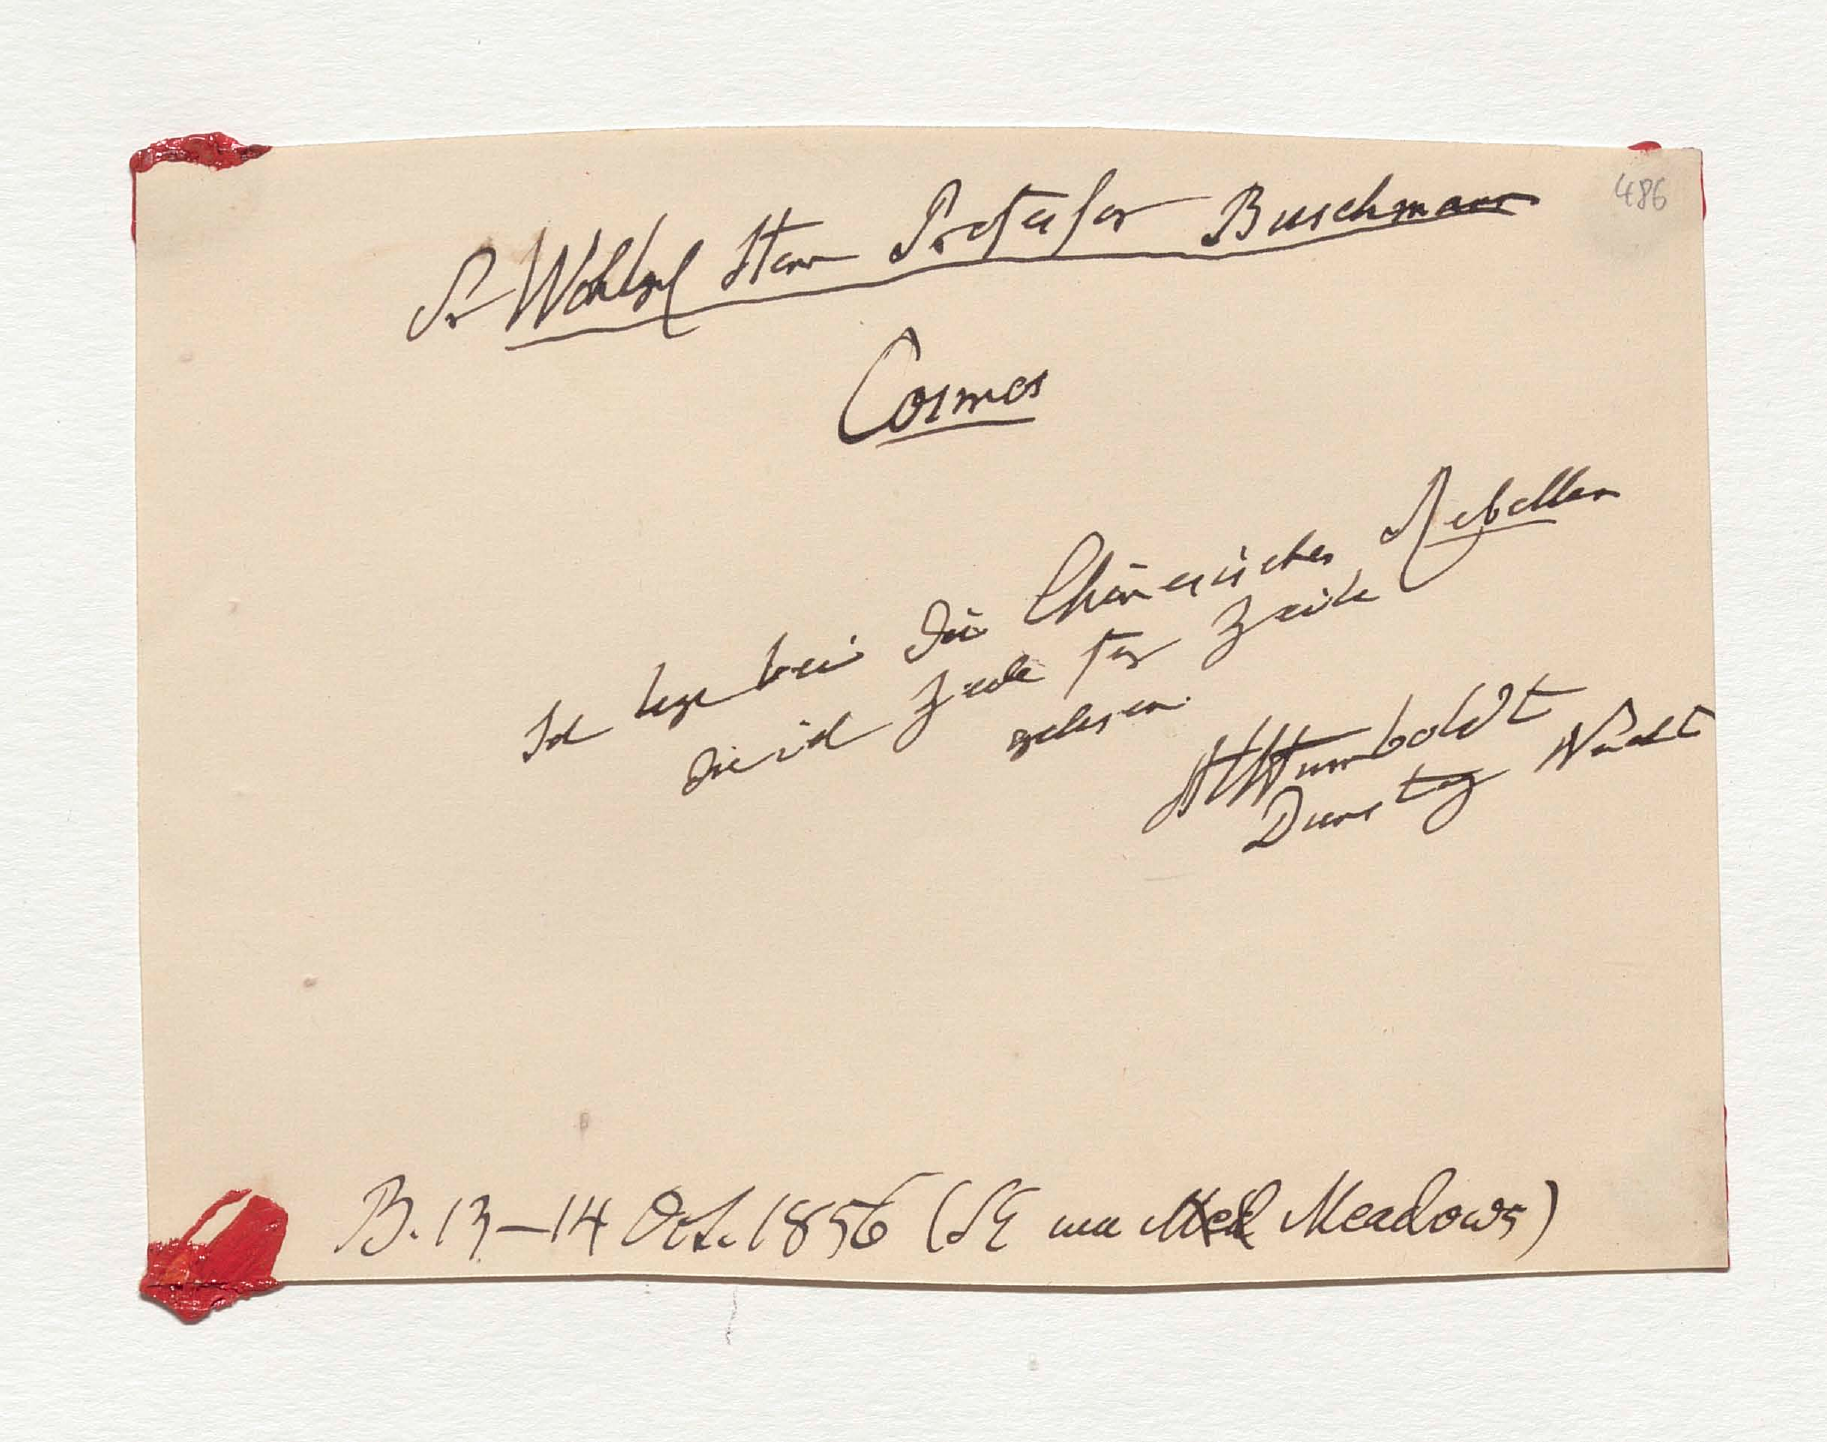 486
Sr Wohlgb Herrn Professor Buschmann
Cosmos
Ich lege bei die Chinesischen Rebellen
die ich Zeile für Zeile
gelesen.
AHumboldt
Dienstag Nacht
B. 13–14 Oct. 1856 ( Meadows)